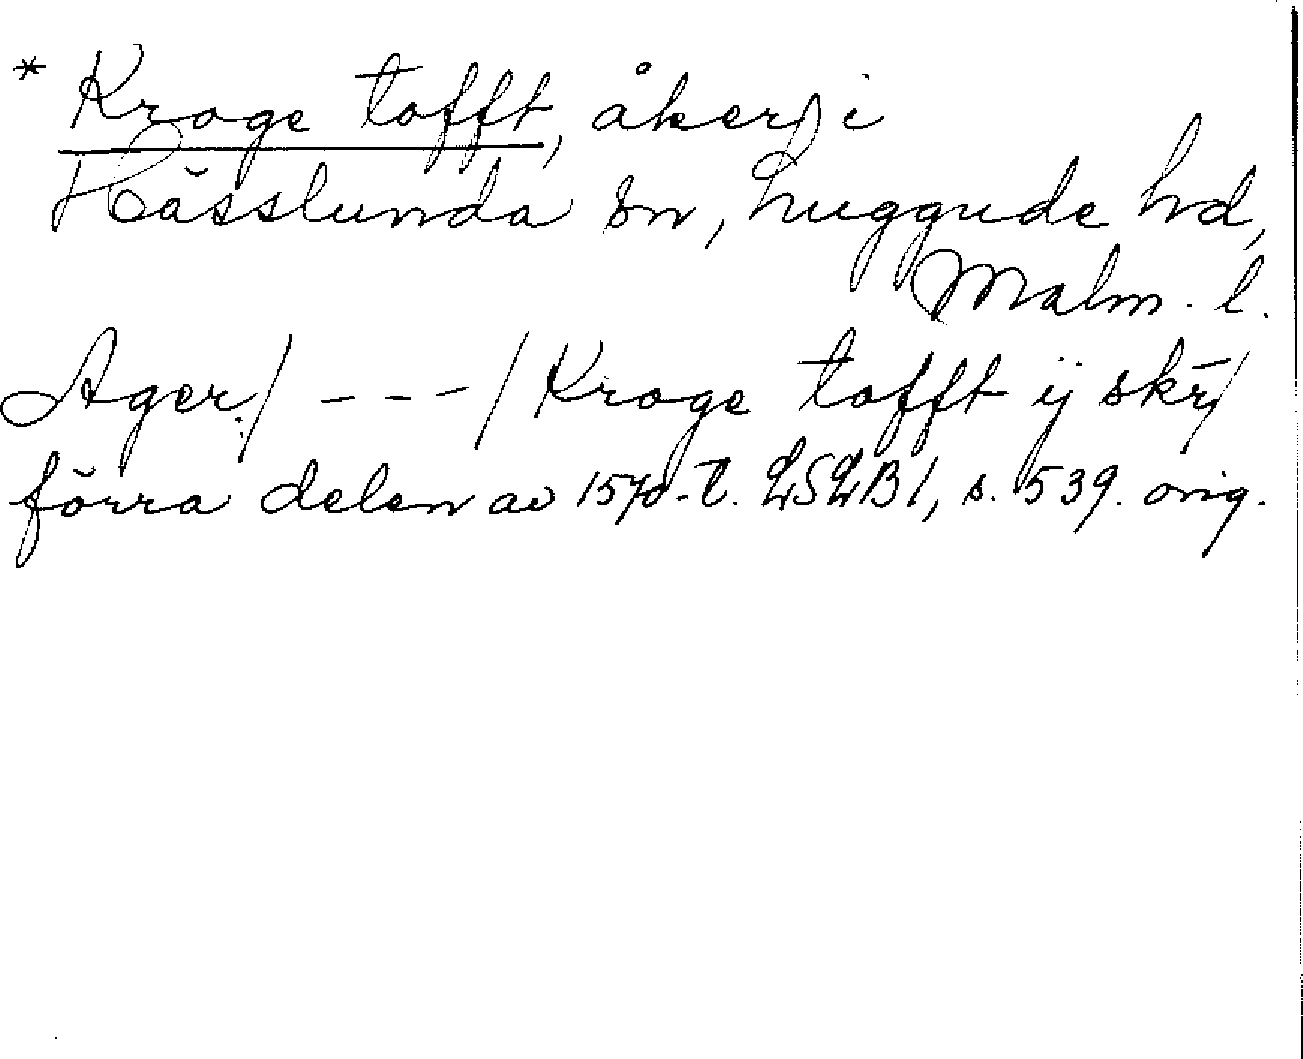 * Kroge tofft, åker i
Hässlunda sn, Luggude hd,
Malm. l.
Ager:/ - - - / Kroge tofft ij skr/
förra delen av 1570-t. LSLB 1, s. 539. orig.